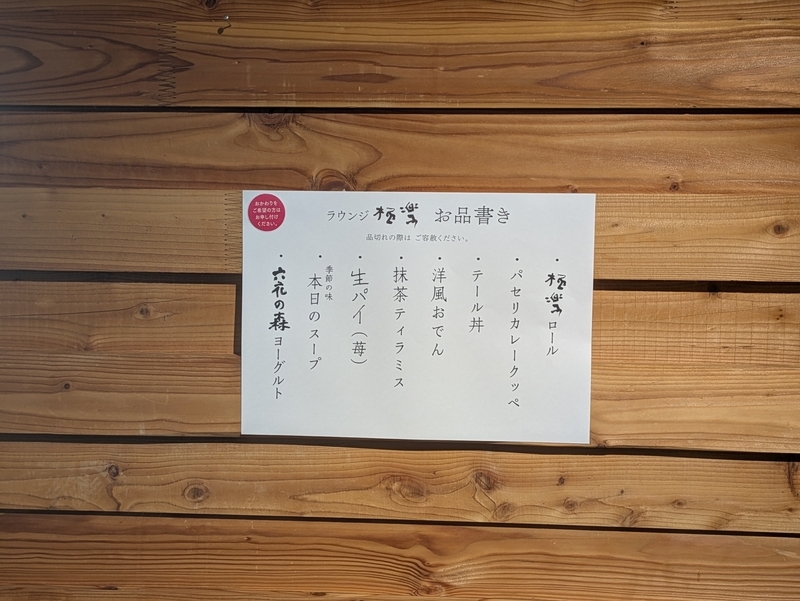 おかわりを
ご希望の方は
お申し付け
ください。
ラウンジ 極楽 お品書き
品切れの際は ご容赦ください。
・極楽ロール
・パセリカレークッペ
・テール丼
・洋風おでん
・抹茶ティラミス
・生パイ（苺）
季節の味
・本日のスープ
・六花の森ヨーグルト